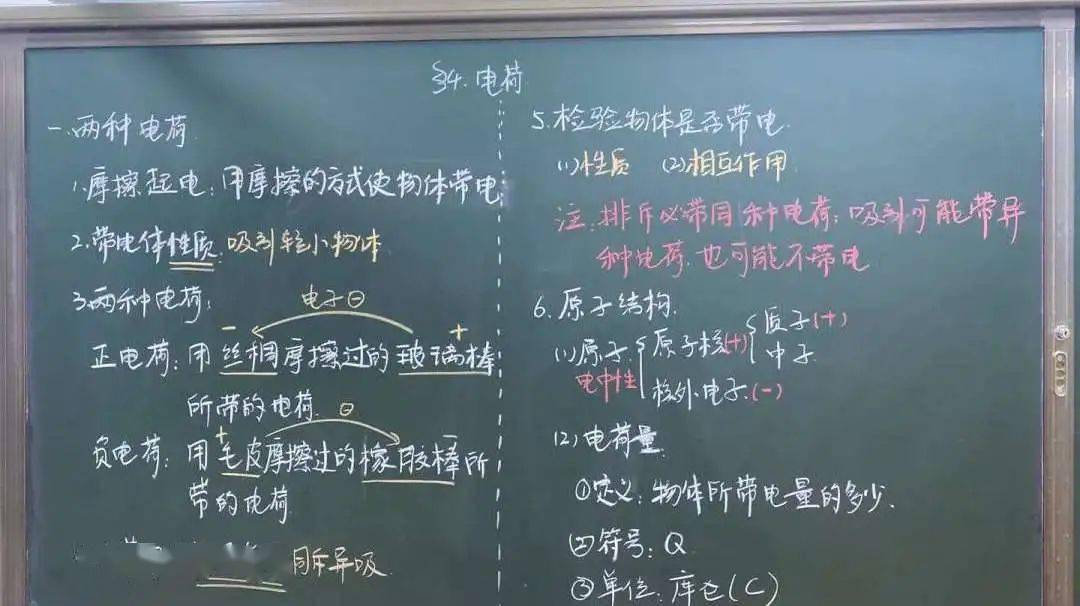 §4. 电荷
一.两种电荷
1.摩擦起电:用摩擦的方式使物体带电
2.带电体性质:吸引轻小物体
3.两种电荷:
电子⊖
- +
正电荷:用丝绸摩擦过的玻璃棒
所带的电荷.
⊖
+ -
负电荷:用毛皮摩擦过的橡胶棒所
带的电荷
同斥异吸
5.检验物体是否带电.
(1)性质 (2)相互作用
注:排斥必带同种电荷;吸引可能带异
种电荷.也可能不带电
6.原子结构.
(1)原子 { 原子核(+) { 质子(+)
中子.
电中性
核外电子.(-)
(2)电荷量
①定义:物体所带电量的多少.
②符号:Q
③单位:库仑(C)